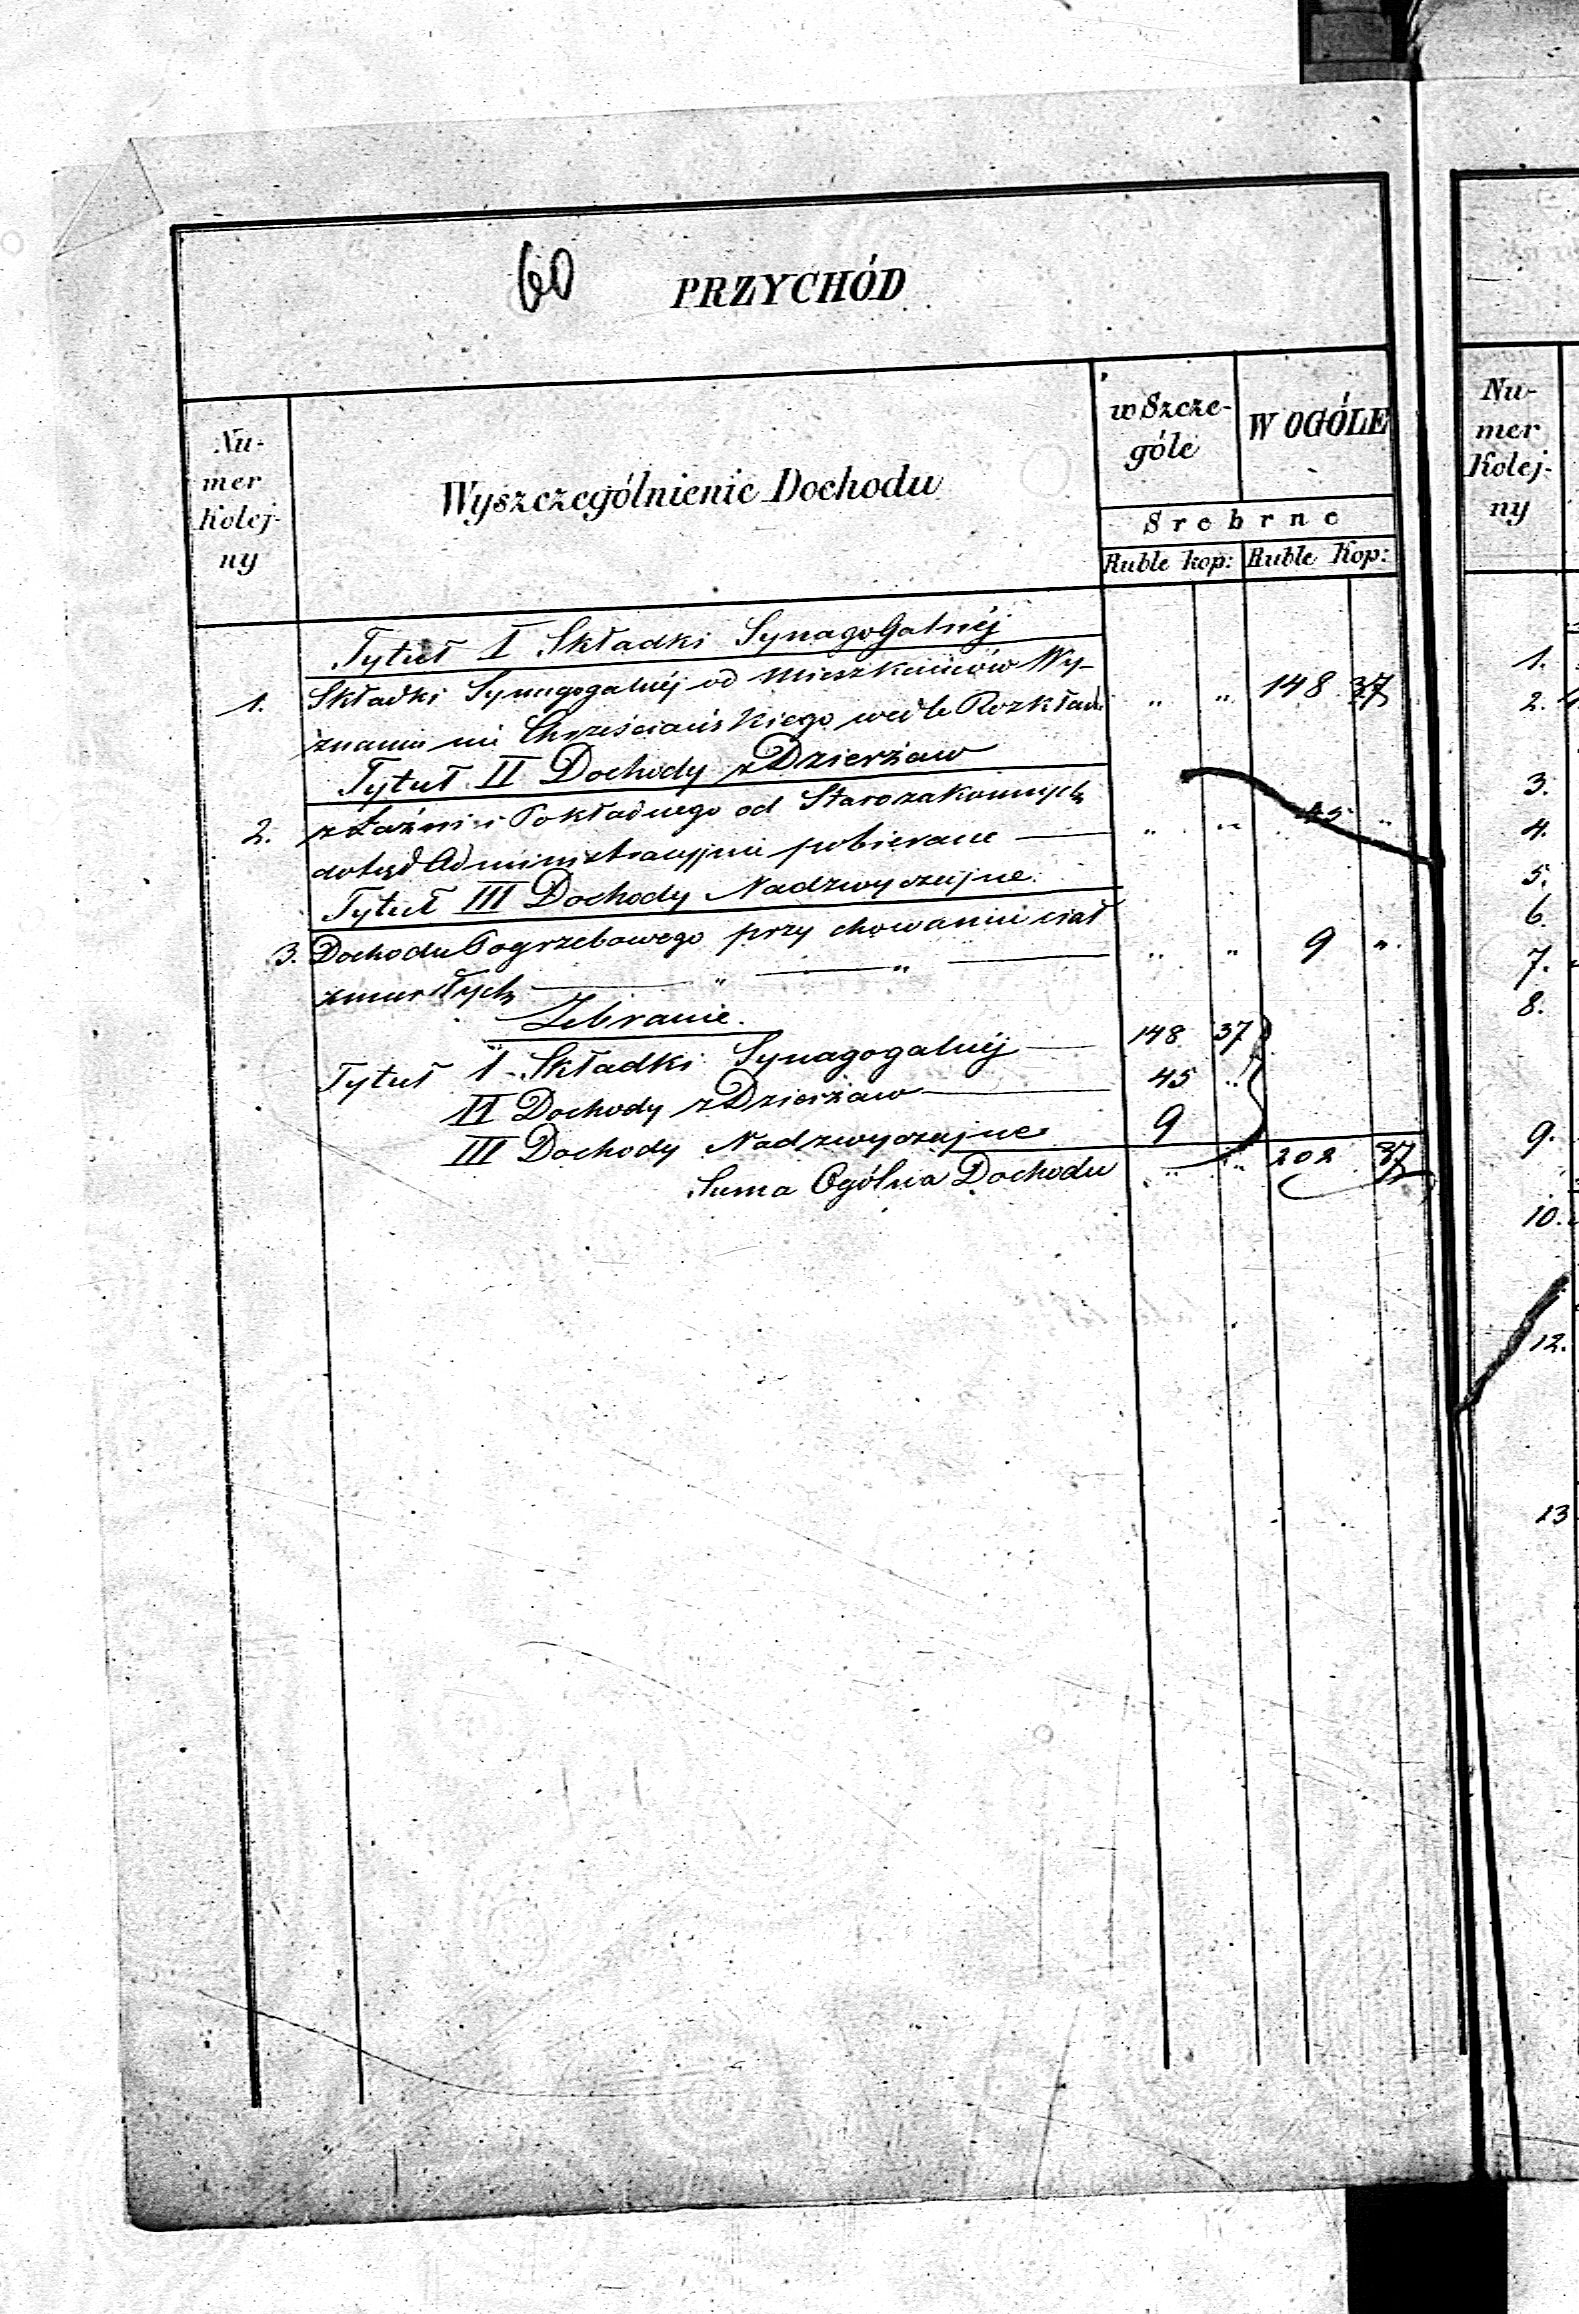 60
PRZYCHÓD
Nu-
mer
Kolej-
ny
Wyszczególnienie Dochodu
w Szcze-
góle
W OGÓLE
Srebrne
Ruble kop: Ruble Kop:
Tytuł I Składki Synagogalnéj
1. Składki Synagogalnéj od Mieszkańców Wy-
znania nie Chrześciańskiego wedle Rozkładu „ „ 148 37
Tytuł II Dochody z Dzierżaw
2. z Łaźni i Pokładnego od Starozakonnych
dotąd Administracyjnie pobierane — „ „ 45 „
Tytuł III Dochody Nadzwyczajne.
3. Dochodu Pogrzebowego przy chowaniu ciał
zmarłych — „ — „ — „ „ 9 „
Zebranie.
Tytuł I Składki Synagogalnéj — 148 37
II Dochody z Dzierżaw — 45 „
III Dochody Nadzwyczajne 9
Suma Ogólna Dochodu „ „ 202 37
Nu-
mer
Kolej-
ny
1.
2.
3.
4.
5.
6.
7.
8.
9.
10.
12.
13